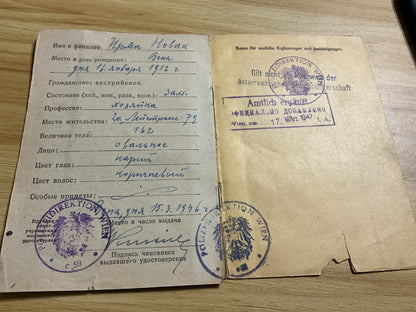 Имя и фамилия: Ирма Новак
Место и день рождения: Вена
дня 16. января 1912 г.
Гражданство: австрийское.
Состояние (хол., жен., разв., вдов.): Зам.
Профессия: хозяйка
Место жительства: 79.
Величина тела: 162
Лицо: овальное
Цвет глаз: карий
Цвет волос: коричневый
Особые приметы:
дня 15.3.1946 г.
Место и число выдачи
Подпись чиновника
выдавшего удостоверение
POLIZEIDIREKTION WIEN
c 59
Raum für amtliche Ergänzungen und Bestätigungen.
Gilt nicht als Nachweis der
österreichischen
Amtlich ergänzt
ОФИЦИАЛЬНО ДОБАВЛЕНО
Wien, am 17. März 1947 i. A.
POLIZEIDIREKTION WIEN
POLIZEIDIREKTION WIEN